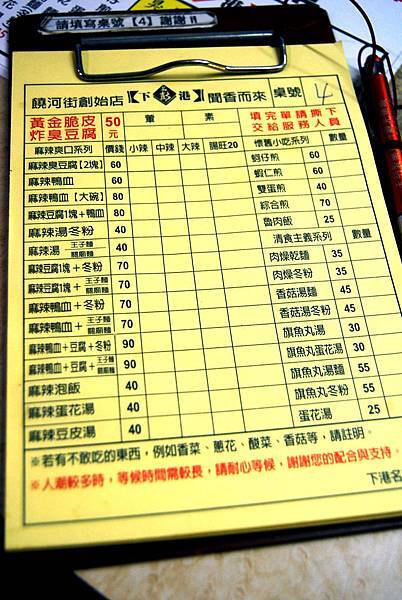 請填寫桌號【4】謝謝!!
饒河街創始店【下港】聞香而來 桌號 4
黃金脆皮炸臭豆腐 50元 葷 素 填完單請撕下交給服務人員
麻辣爽口系列 價錢 小辣 中辣 大辣 腸旺20 懷舊小吃系列 數量
麻辣臭豆腐【2塊】 60 蚵仔煎 60
麻辣鴨血 60 蝦仁煎 60
麻辣鴨血【大碗】 80 雙蛋煎 40
麻辣豆腐1塊+鴨血 80 綜合煎 70
麻辣湯冬粉 40 魯肉飯 25
麻辣湯 王子麵 關廟麵 40 清食主義系列 數量
麻辣豆腐1塊+冬粉 70 肉燥乾麵 35
麻辣豆腐1塊+ 王子麵 關廟麵 70 肉燥冬粉 35
麻辣鴨血+冬粉 70 香菇湯麵 45
麻辣鴨血+ 王子麵 關廟麵 70 香菇湯冬粉 45
麻辣鴨血+豆腐+冬粉 90 旗魚丸湯 30
麻辣鴨血+豆腐+ 王子麵 關廟麵 90 旗魚丸蛋花湯 40
麻辣泡飯 40 旗魚丸湯麵 55
麻辣蛋花湯 40 旗魚丸冬粉 55
麻辣豆皮湯 40 蛋花湯 25
※若有不敢吃的東西,例如香菜、蔥花、酸菜、香菇等,請註明。
※人潮較多時,等候時間需較長,請耐心等候,謝謝您的配合與支持。
下港名